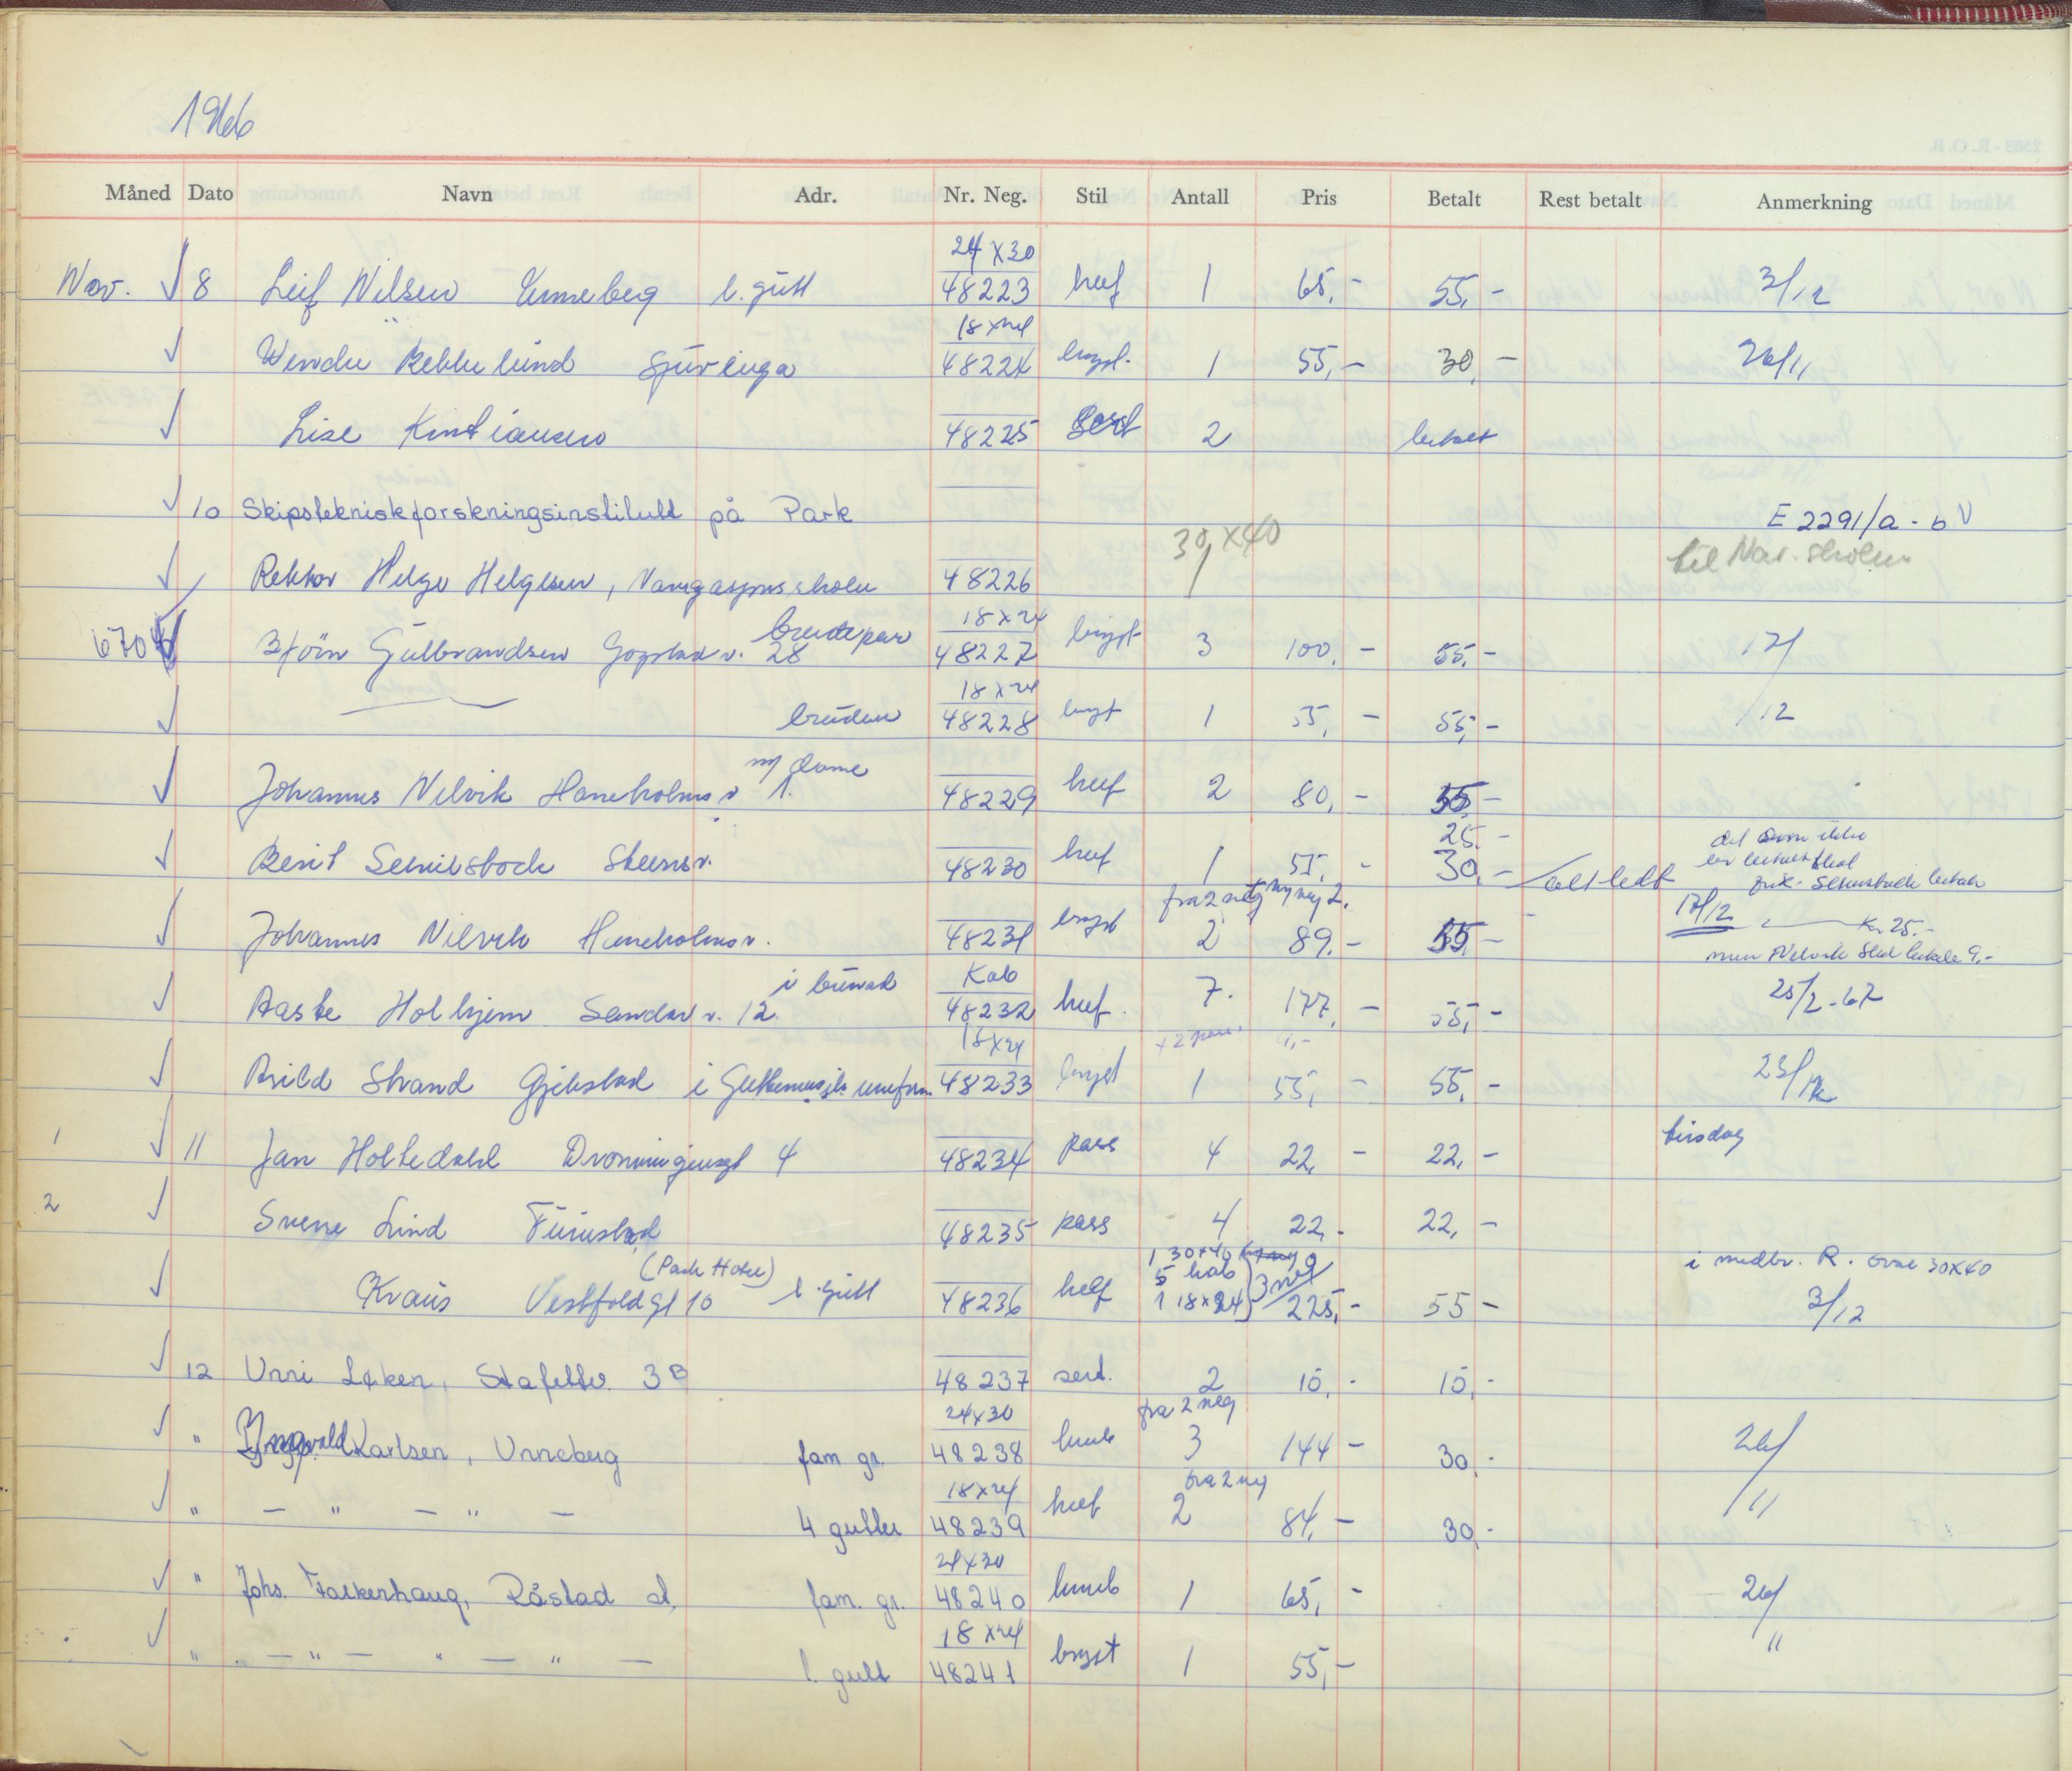 1966
Måned Dato Navn Adr. Nr. Neg. Stil Antall Pris Betalt Rest betalt Anmerkning
24 x 30
Nov. 8 Leif Nilsen Unneberg l. gutt 48223 heef 1 65,- 55,- 3/12
18 x 24
Wenche Rekkelund Gjurluga 48224 bryst. 1 55,- 30,- 26/11
Lise Kristiansen 48225 Sert 2 betalt
10 Skipstekniskforskningsinstitutt på Park E 2291/a - b V
30 x 40
Rektor Helge Helgesen, Navigasjonsskolen 48226 1 til Nav. skolen
brudepar 18 x 24
670 Bjørn Gulbrandsen Gogstad v. 28 48227 bryst 3 100,- 55,- 17/12
18 x 24
bruden 48228 bryst 1 55,- 55,-
m/ dame
Johannes Nilvik Haneholmv. 1. 48229 heef 2 80,- 55,-
25,-
Berit Selvikstock Steensv. 48230 heef 1 55,- 30,- alt ledt
det som ikke
er betalt skal
frk. betale
17/12 Kr. 25.-
fra 2 neg ny neg 2.
Johannes Nilvik Haneholmv. 48231 bryst 2 89,- 55,-
men Nilvik skal betale 9,-
i bunad Kab
Aaste Holhjem Sandar v. 12 48232 heef. 7. 177,- 55,- 25/2-67
18 x 24 + 2 pass.
Arild Strand Gjekstad i Guttemusik uniform 48233 bryst 1 55,- 55,- 23/12
1 11 Jan Holtedahl Dronningensgt 4 48234 pass 4 22,- 22,- tirsdag
2 Svene Lind Furustad 48235 pass 4 22,- 22,-
(Park Hotel) 1 30x40
5 kab 3 neg
1 18x24
i medbr. R. 30x40
Kraus Vestfoldgt 10 l. gutt 48236 heef 225,- 55- 3/12
12 Unni Løken, Stafettv. 3B 48237 sert. 2 10,- 10,-
24x30 fra 2 neg
" Yngvald Karlsen, Unneberg fam gr. 48238 knceb 3 144- 30,- 26/11
18 x 24 fra 2 neg
" - " - " - 4 gutter 48239 heef 2 84,- 30,-
24x30
" Johs. Falkenhaug, Råstad st. fam. gr. 48240 knceb 1 65,- 26/11
18 x 24
" - " - " - " - l. gutt 48241 bryst 1 55,-